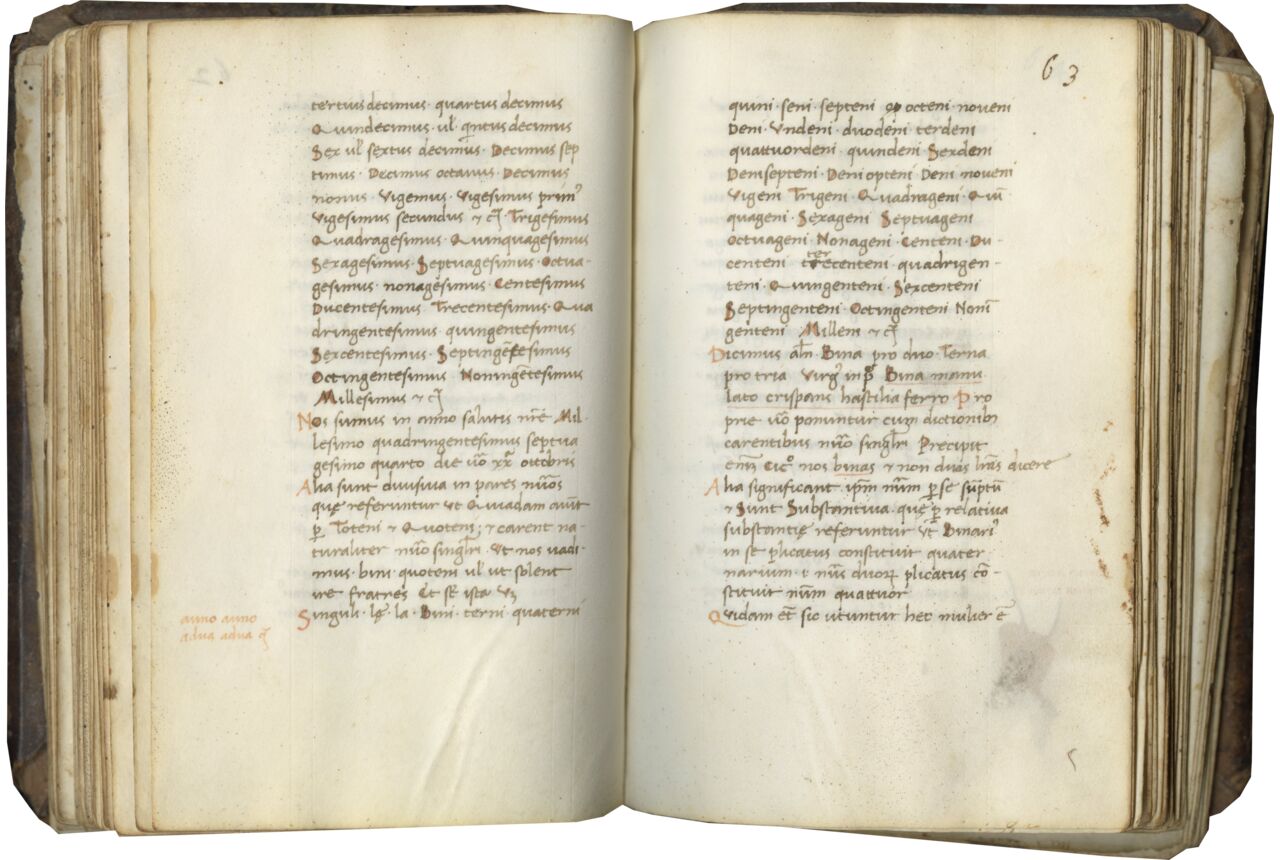 tertius decimus · quartus decimus
Quindecimus · ul' qntus decimus
Sex ul' sextus decimus · Decimus sep
timus · Decimus octavus · Decimus
nonus · Vigemus · Vigesimus prim9
Vigesimus secundus & c · Trigesimus
Quadragesimus · Quinquagesimus
Sexagesimus · Septuagesimus · Octua-
gesimus · nonagesimus · Centesimus
Ducentesimus · Trecentesimus · Qua
dringentesimus · quingentesimus
Sexcentesimus · Septingētesimus
Octingentesimus Noningētesimus
Millesimus & c
Nos sumus in anno salutis nrē Mil-
lesimo quadringentesimus septua
gesimo quarto die uō xxa ottobris
Alia sunt divisiva in pares nūos
quę referuntur ut Quidam aiūt
p Toteni & Quoteni; & carent na-
turaliter nūo singlri · Ut nos vadi-
mus · bini · quoteni ul' ut solent
ire fratres Et sē ista
anno anno
Singuli · lę · la · Bini · terni · quaterni
adua adua
63
quini · seni · septeni octeni · noveni
Deni · Undeni · duodeni terdeni
quattuordeni · quindeni Sexdeni
Deniseptenì · Deni opteni Deni noveni
Vigeni Trigeni · Quadrageni · Quī
quageni · Sexageni Septuageni
Octuageni · Nonageni · Centeni · Du-
centeni ter trecenteni · quadrigen-
teni · Quingenteni · Sexcenteni
Septingenteni · Octingenteni Noni
genteni Milleni & c
Dicimus aln Bina pro duo · Terna
pro tria Virg9 in p Bina manu
lato crispans hastilia ferro Pro
prie uō ponuntur cum dictionib
carentibus nūo singlri Precipit
enm Cico nos binas & non duas lras dicere
Alia significant ipm num p se sūptū
& Sunt Substantiva · quę p relativa
substantię referuntur ut Binari9
in se plicatus constituit quater
narium · i · nūs duorum plicatus cō-
stituit num quattuor
Quidam et sic utuntur hec mulier ē